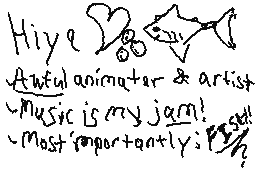 Hiya
~Awful animator & artist
~Music is my jam!
~Most importantly: FISH!!